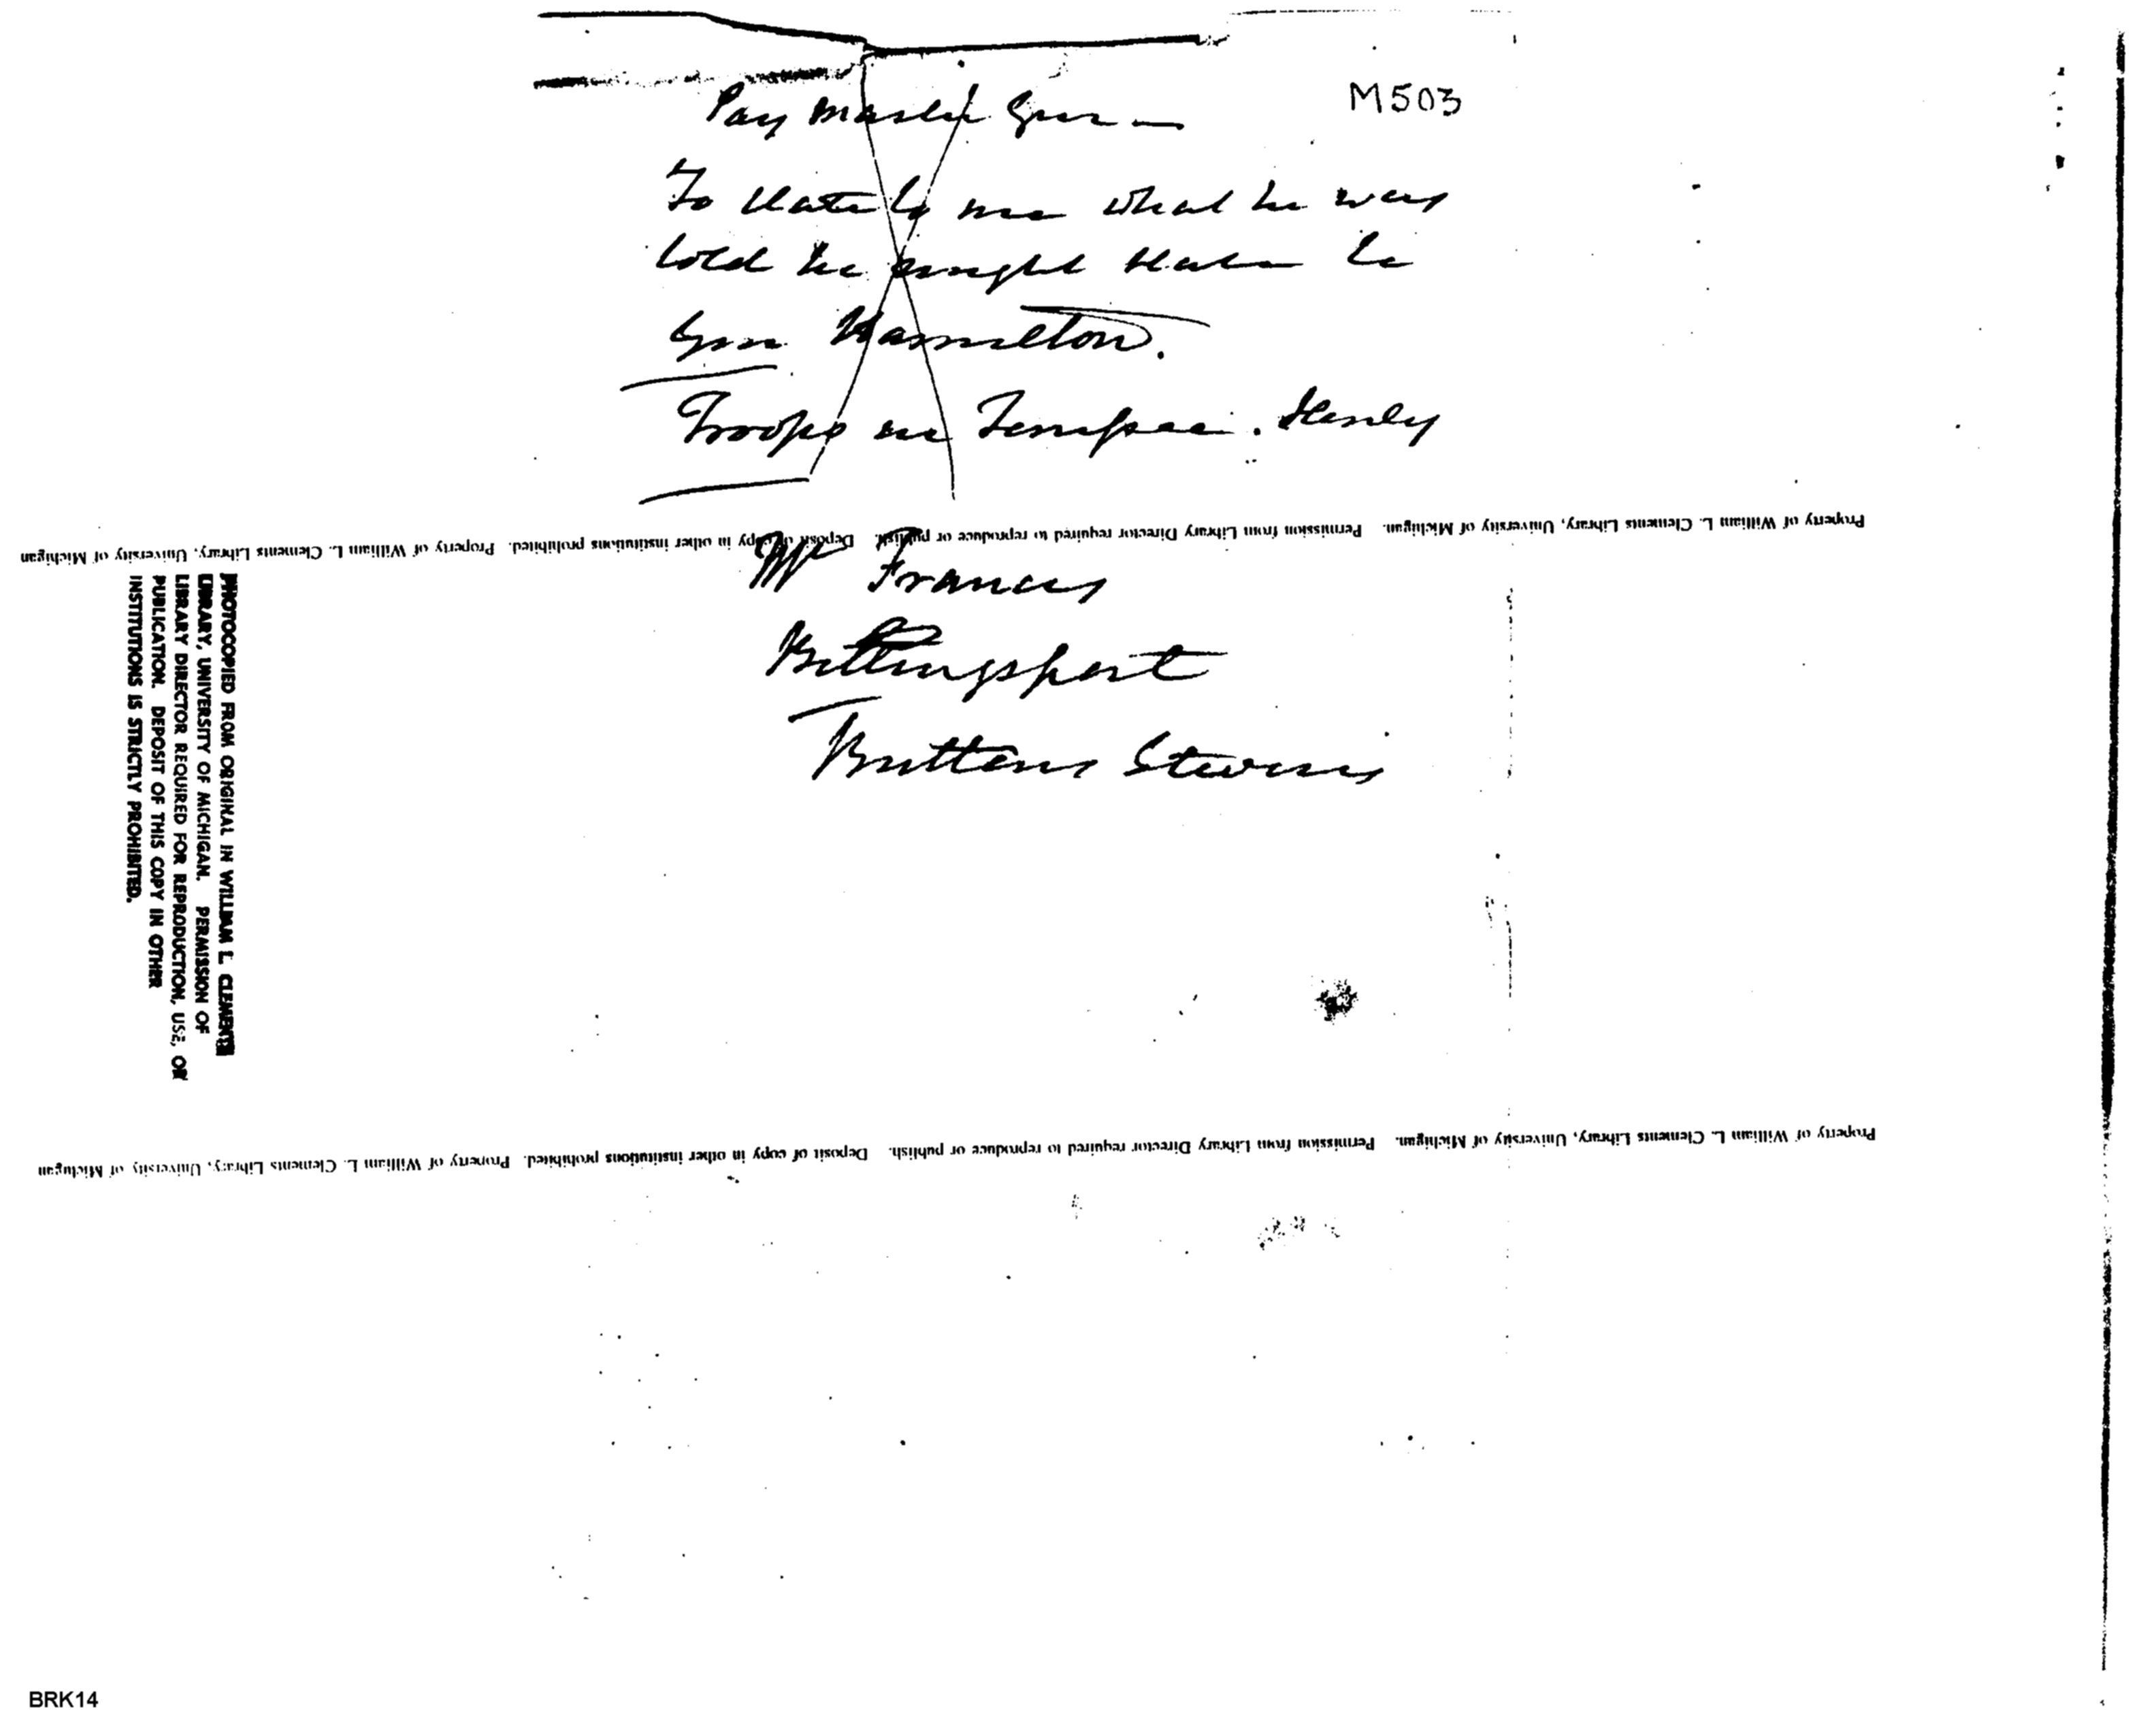 M503
Pay Master Gen —
To state to me what he was
told he might state to
Gen Hamilton.
Troops in Tempee. Henly
Property of William L. Clements Library, University of Michigan. Permission from Library Director required to reproduce or publish. Deposit of copy in other institutions prohibited. Property of William L. Clements Library, University of Michigan
Mr Francis
Billingsport
Buttons Stevens
PHOTOCOPIED FROM ORIGINAL IN WILLIAM L. CLEMENTS
LIBRARY, UNIVERSITY OF MICHIGAN. PERMISSION OF
LIBRARY DIRECTOR REQUIRED FOR REPRODUCTION, USE, OR
PUBLICATION. DEPOSIT OF THIS COPY IN OTHER
INSTITUTIONS IS STRICTLY PROHIBITED.
Property of William L. Clements Library, University of Michigan. Permission from Library Director required to reproduce or publish. Deposit of copy in other institutions prohibited. Property of William L. Clements Library, University of Michigan
BRK14